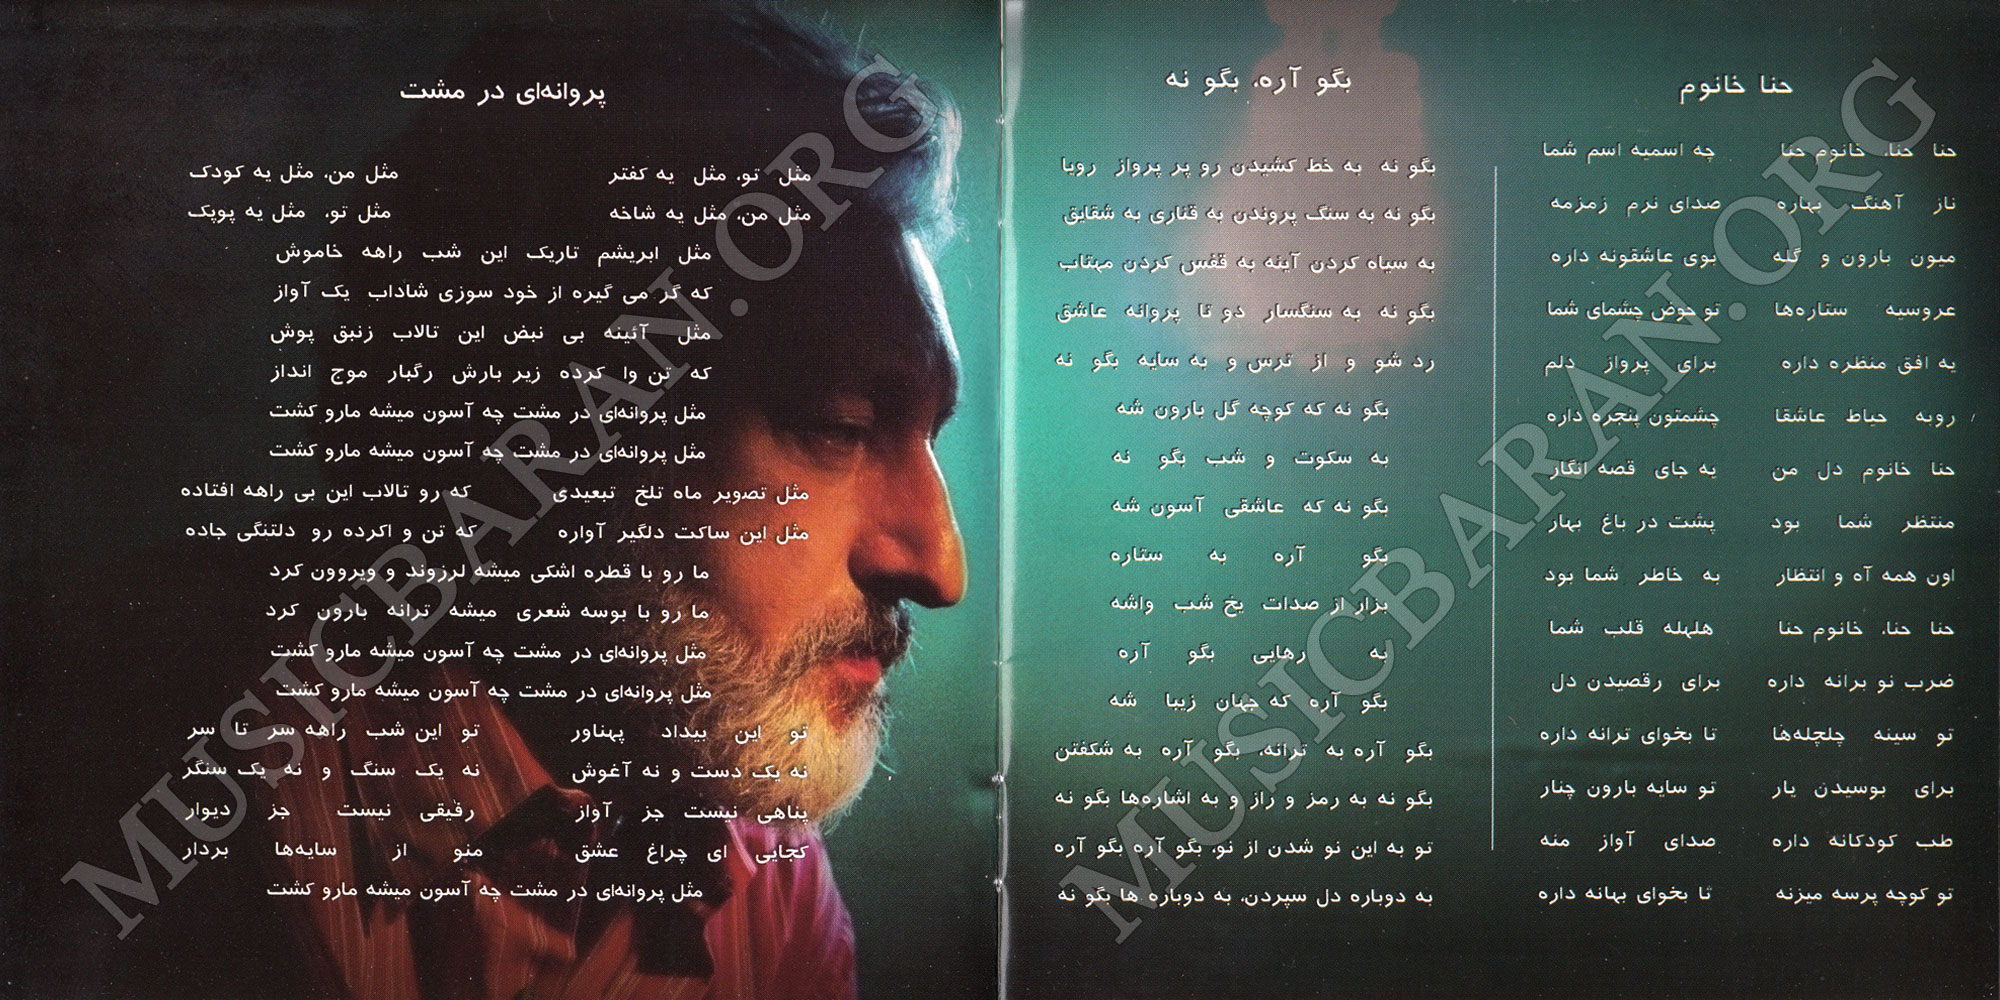 حنا خانوم
حنا حنا، خانوم حنا چه اسمیه اسم شما
ناز آهنگ بهاره صدای نرم زمزمه
میون بارون و گله بوی عاشقونه داره
عروسیه ستاره‌ها تو حوض چشمای شما
یه افق منظره داره برای پرواز دلم
روبه حیاط عاشقا چشمتون پنجره داره
حنا خانوم دل من یه جای قصه انگار
منتظر شما بود پشت در باغ بهار
اون همه آه و انتظار به خاطر شما بود
حنا حنا، خانوم حنا هلهله قلب شما
ضرب نو برانه داره برای رقصیدن دل
تو سینه چلچله‌ها تا بخوای ترانه داره
برای بوسیدن یار تو سایه بارون چنار
طب کودکانه داره صدای آواز منه
تو کوچه پرسه میزنه تا بخوای بهانه داره
بگو آره، بگو نه
بگو نه به خط کشیدن رو پر پرواز رویا
بگو نه به سنگ پروندن به قناری به شقایق
به سیاه کردن آینه به قفس کردن مهتاب
بگو نه به سنگسار دو تا پروانه عاشق
رد شو و از ترس و به سایه بگو نه
بگو نه که کوچه گل بارون شه
به سکوت و شب بگو نه
بگو نه که عاشقی آسون شه
بگو آره به ستاره
بزار از صدات یخ شب واشه
به رهایی بگو آره
بگو آره که جهان زیبا شه
بگو آره به ترانه، بگو آره به شکفتن
بگو نه به رمز و راز و به اشاره‌ها بگو نه
تو به این نو شدن از نو، بگو آره بگو آره
به دوباره دل سپردن، به دوباره ها بگو نه
پروانه‌ای در مشت
مثل تو، مثل یه کفتر مثل من، مثل یه کودک
مثل من، مثل یه شاخه مثل تو، مثل یه پوپک
مثل ابریشم تاریک این شب راهه خاموش
که گر می گیره از خود سوزی شاداب یک آواز
مثل آئینه بی نبض این تالاب زنبق پوش
که تن وا کرده زیر بارش رگبار موج انداز
مثل پروانه‌ای در مشت چه آسون میشه مارو کشت
مثل پروانه‌ای در مشت چه آسون میشه مارو کشت
مثل تصویر ماه تلخ تبعیدی که رو تالاب این بی راهه افتاده
مثل این ساکت دلگیر آواره که تن و اکرده رو دلتنگی جاده
ما رو با قطره اشکی میشه لرزوند و ویروون کرد
ما رو با بوسه شعری میشه ترانه بارون کرد
مثل پروانه‌ای در مشت چه آسون میشه مارو کشت
مثل پروانه‌ای در مشت چه آسون میشه مارو کشت
تو این بیداد پهناور تو این شب راهه سر تا سر
نه یک دست و نه آغوش نه یک سنگ و نه یک سنگر
پناهی نیست جز آواز رفیقی نیست جز دیوار
کجایی ای چراغ عشق منو از سایه‌ها بردار
مثل پروانه‌ای در مشت چه آسون میشه مارو کشت
MUSICBARAN.ORG
MUSICBARAN.ORG